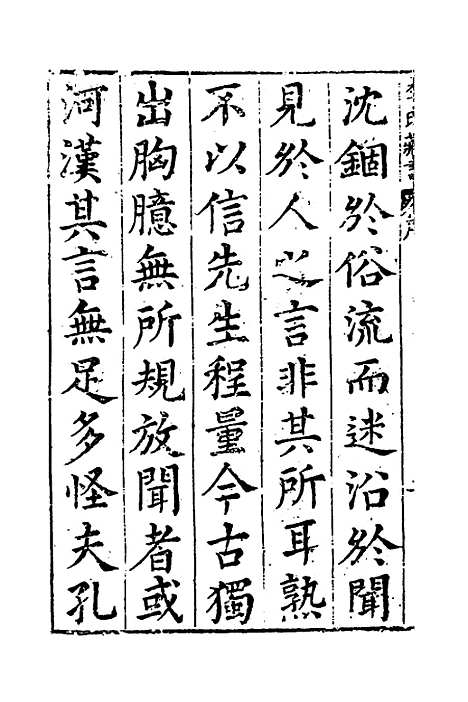 李氏藏書
沈錮於俗流而迷沿於聞
見於人之言非其所耳熟
不以信先生程量今古獨
出胸臆無所規放聞者或
河漢其言無足多怪夫孔